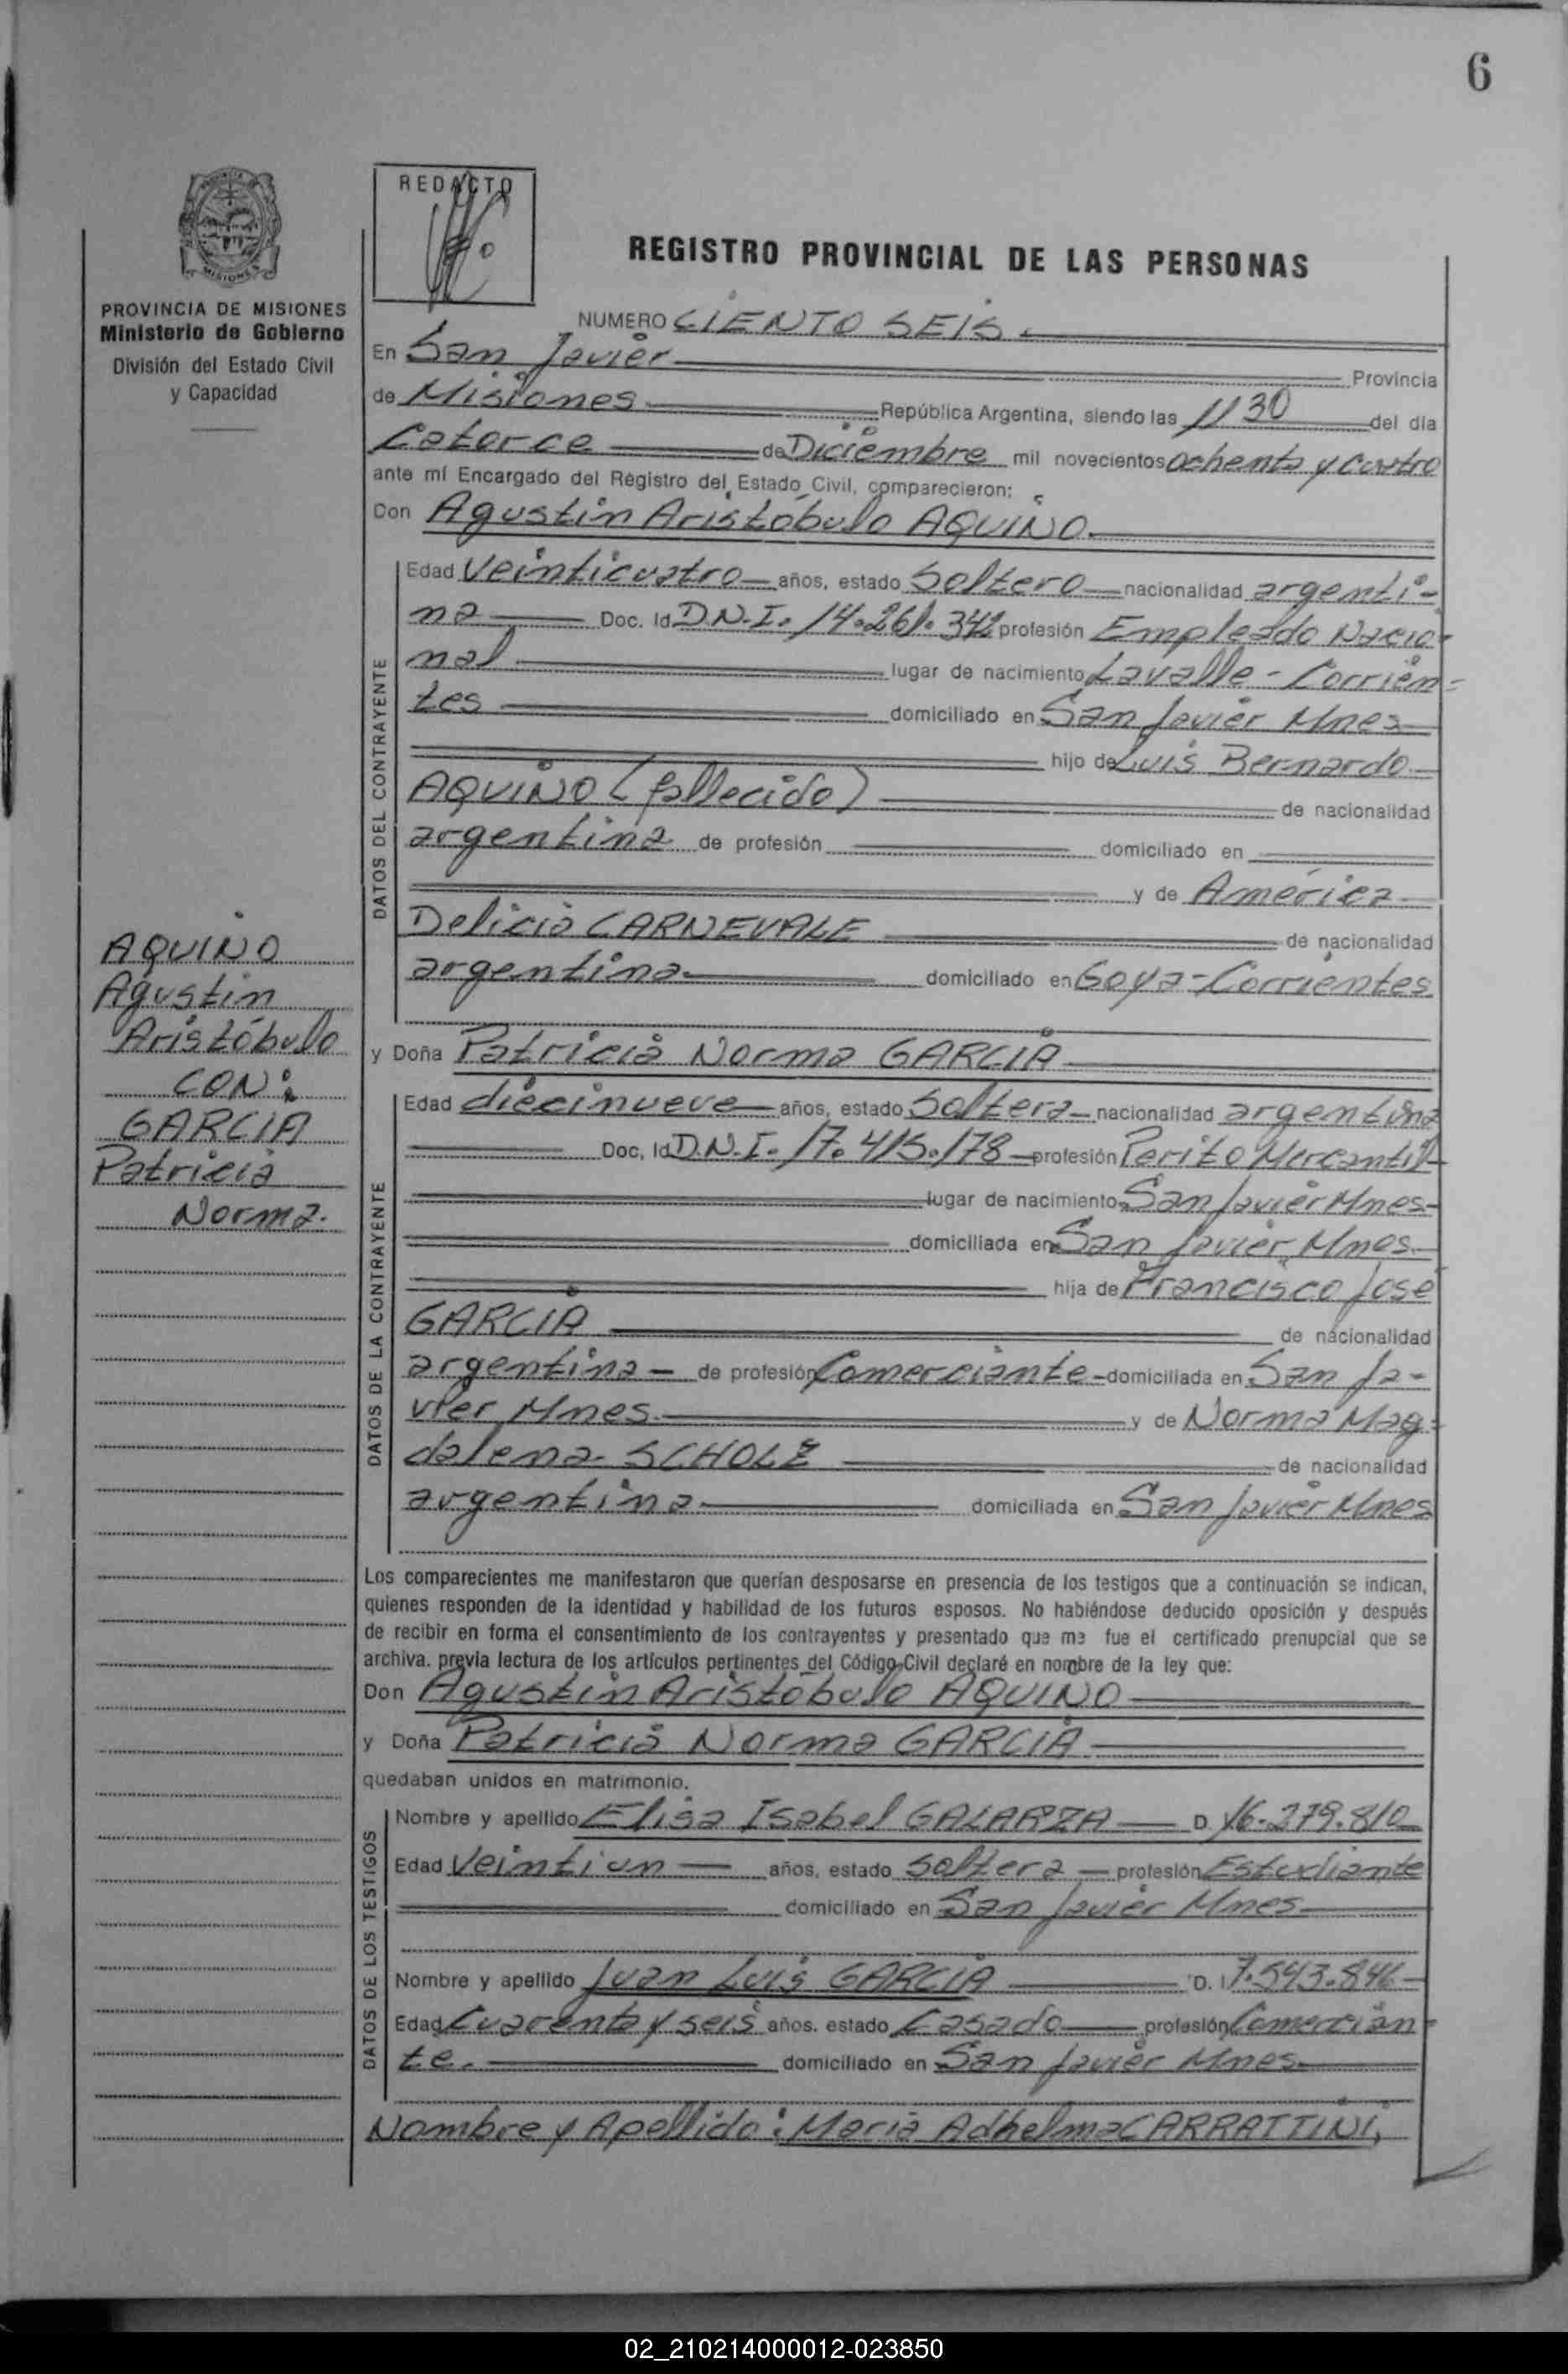 6
REDACTO
REGISTRO PROVINCIAL DE LAS PERSONAS
MISIONES
PROVINCIA DE MISIONES
Ministerio de Gobierno
División del Estado Civil
y Capacidad
AQUINO
Agustín
Aristóbulo
CON:
GARCIA
Patricia
Norma.
NUMERO CIENTO SEIS.
En San Javier Provincia
de Misiones República Argentina, siendo las 11 30 del día
Catorce de Diciembre mil novecientos ochenta y cuatro
ante mí Encargado del Régistro del Estado Civil, comparecieron:
Don Agustín Aristóbulo AQUINO.
DATOS DEL CONTRAYENTE
Edad Veinticuatro años, estado Soltero nacionalidad argenti-
na Doc. Id D.N.I. 14.261.342 profesión Empleado Nacio-
nal lugar de nacimiento Lavalle - Corrien-
tes domiciliado en San Javier Mnes
hijo de Luis Bernardo
AQUINO (fallecido) de nacionalidad
argentina de profesión domiciliado en
y de América
Delicia CARNEVALE de nacionalidad
argentina domiciliado en Goya-Corrientes
y Doña Patricia Norma GARCIA
DATOS DE LA CONTRAYENTE
Edad diecinueve años, estado Soltera nacionalidad argentina
Doc, Id D.N.I. 17.415.178 profesión Perito Mercantil
lugar de nacimiento San Javier Mnes
domiciliada en San Javier, Mnes
hija de Francisco José
GARCIA de nacionalidad
argentina - de profesión Comerciante - domiciliada en San Ja-
vier Mnes y de Norma Mag-
dalena SCHOLZ de nacionalidad
argentina domiciliada en San Javier Mnes
Los comparecientes me manifestaron que querían desposarse en presencia de los testigos que a continuación se indican,
quienes responden de la identidad y habilidad de los futuros esposos. No habiéndose deducido oposición y después
de recibir en forma el consentimiento de los contrayentes y presentado que me fue el certificado prenupcial que se
archiva. previa lectura de los artículos pertinentes del Código Civil declaré en nombre de la ley que:
Don Agustín Aristóbulo AQUINO
y Doña Patricia Norma GARCIA
quedaban unidos en matrimonio.
DATOS DE LOS TESTIGOS
Nombre y apellido Elisa Isabel GALARZA D. 16.279.810
Edad Veintiun años, estado Soltera - profesión Estudiante
domiciliado en San Javier Mnes
Nombre y apellido Juan Luis GARCIA D. I 7.543.846
Edad Cuarenta y seis años. estado Casado profesión Comercian-
te. domiciliado en San Javier Mnes
Nombre y Apellido: María Adhelma CARRATTINI,
02_210214000012-023850